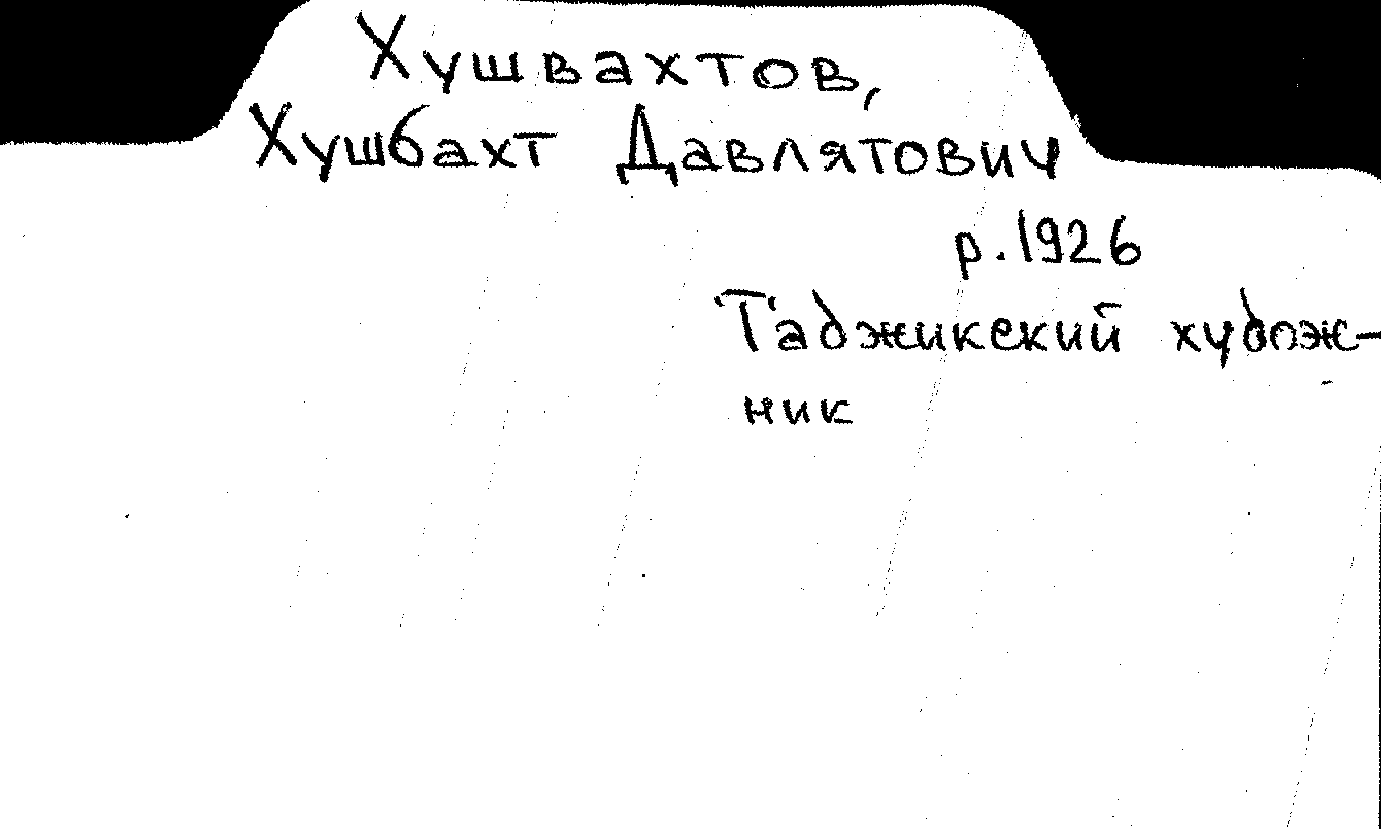 Хушвахтов,
Хушбахт Давлятович
р. 1926
Таджикский худож-
ник